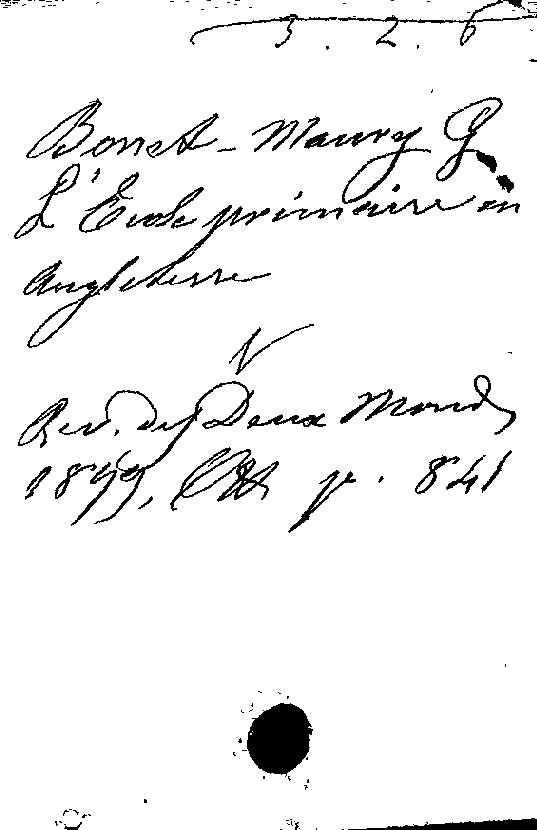 3. 2. 6
Bonet-Maury G
L'École primaire en
Angleterre
V
Rev. des Deux Mondes
1899, Oct p. 841